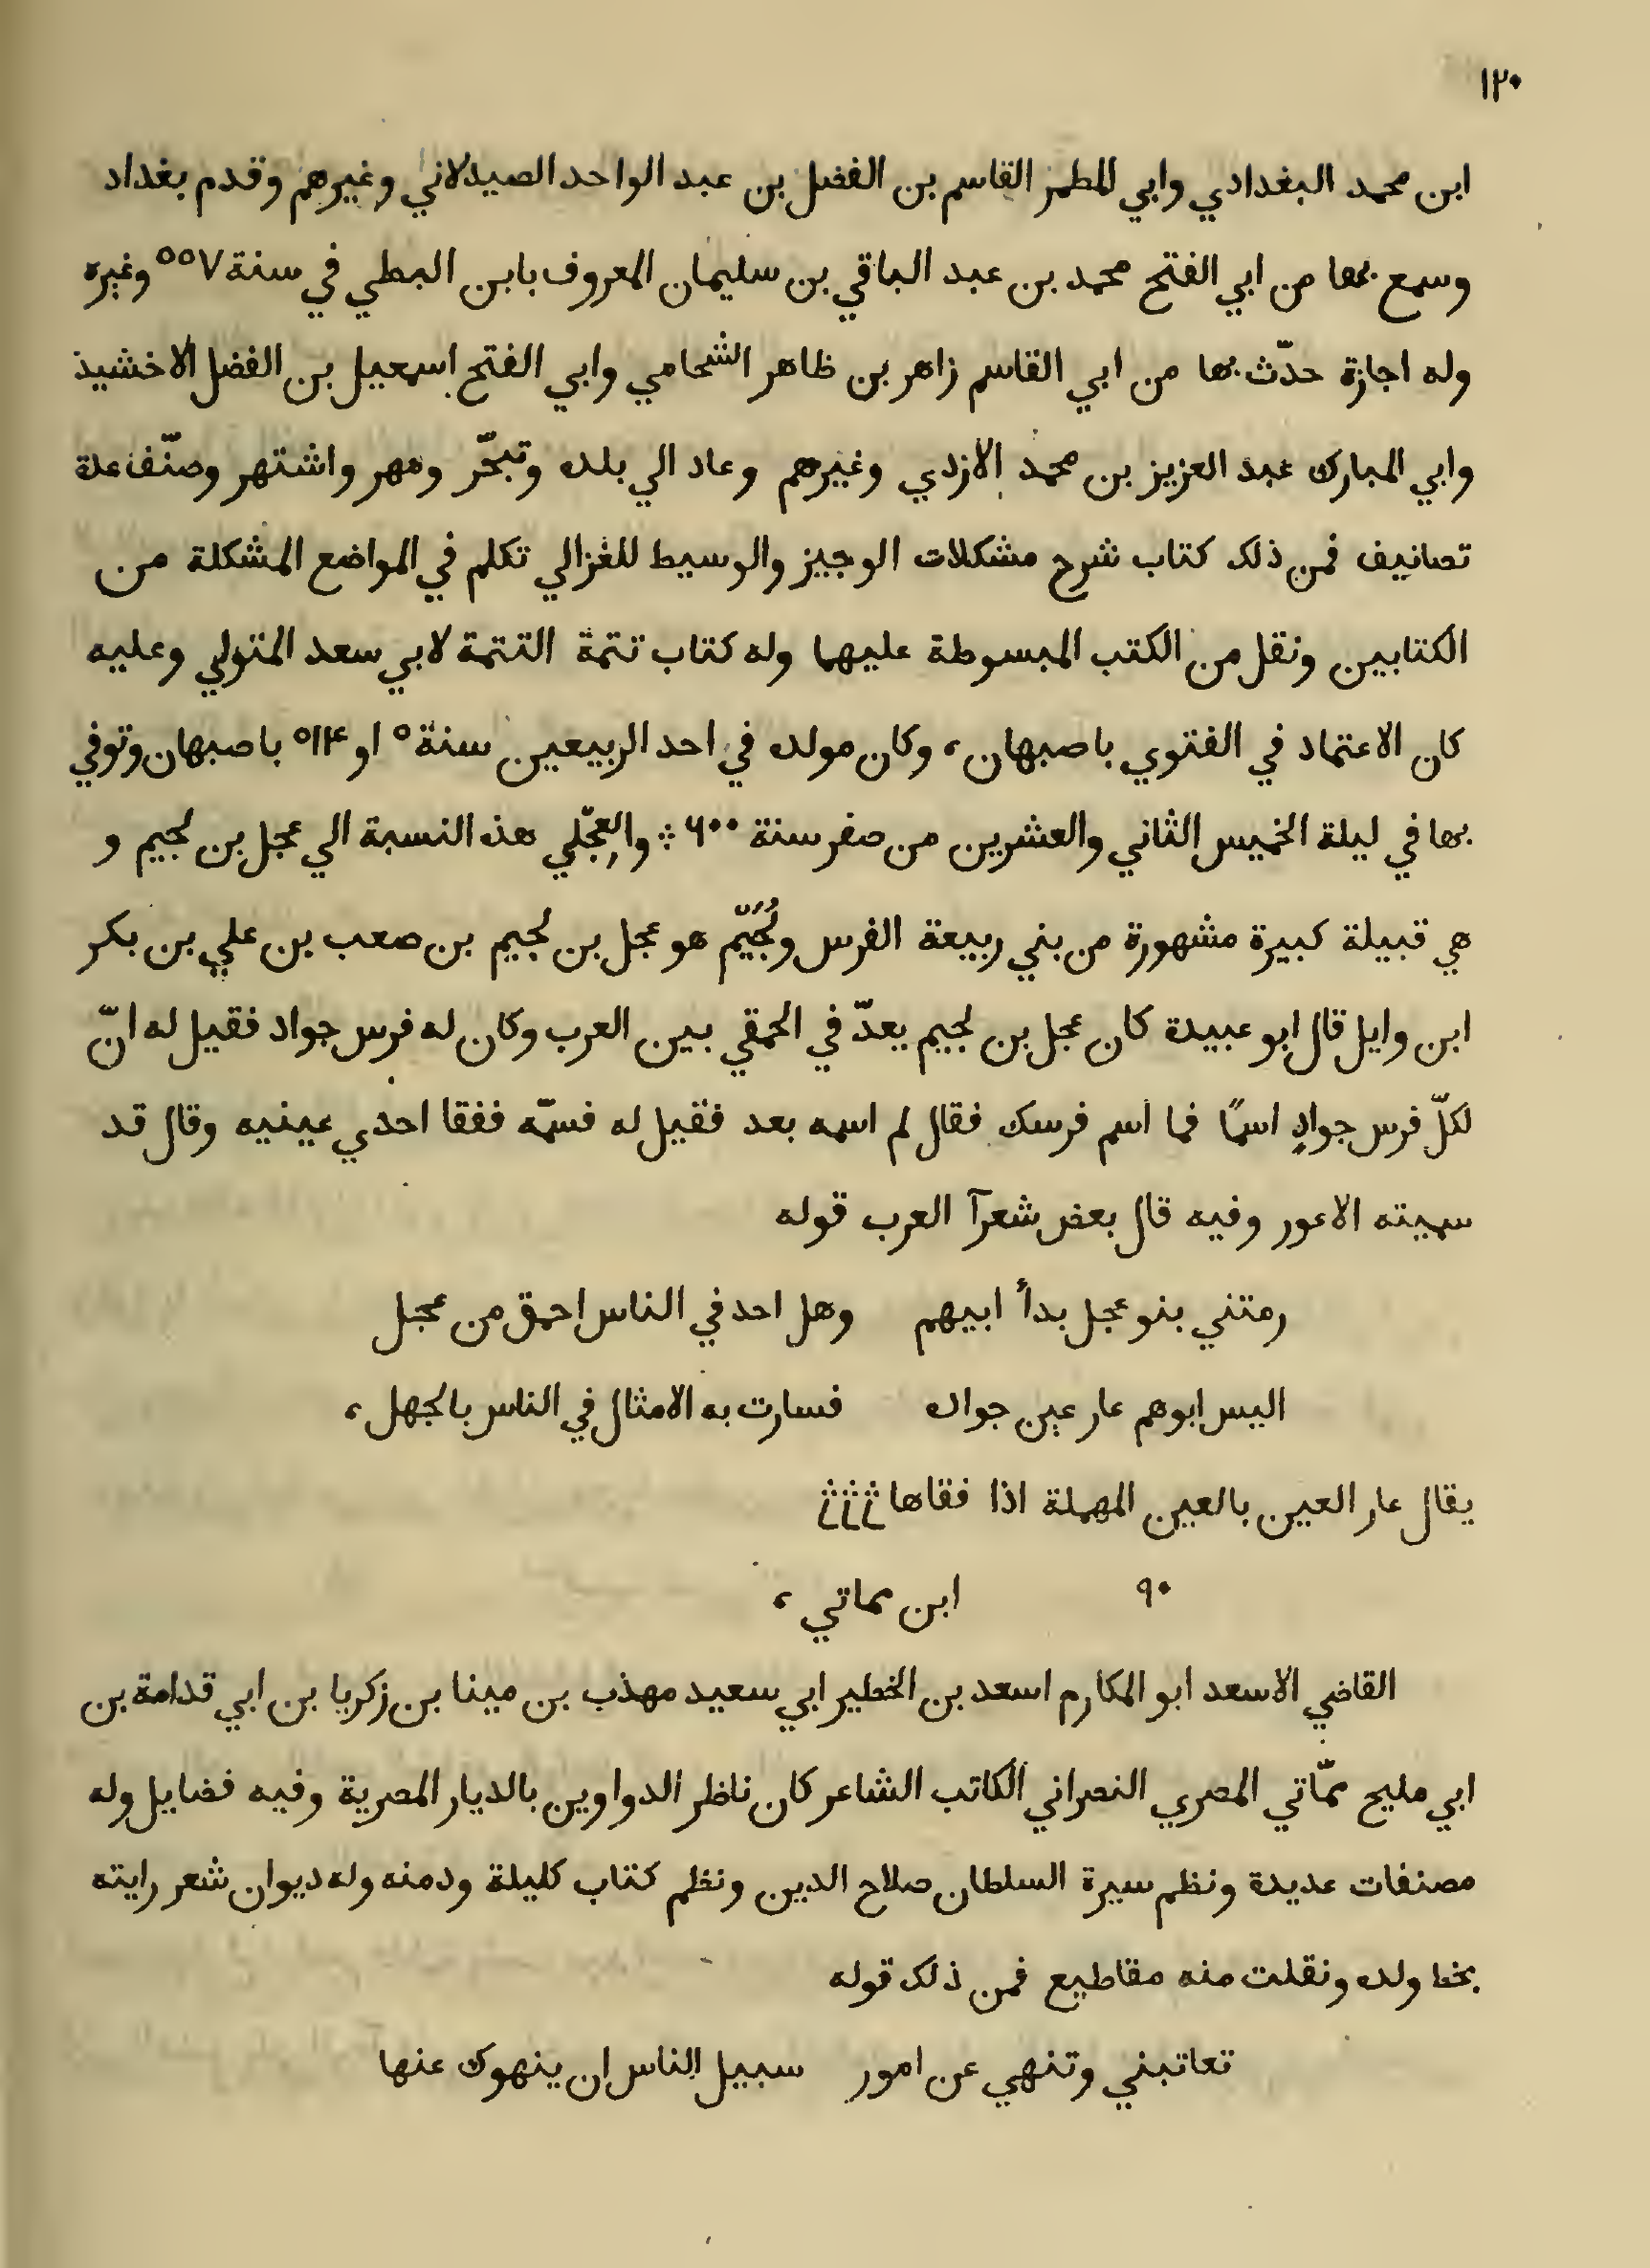 ١٢٠
ابن محمد البغدادي وابي المطهر القاسم بن الفضل بن عبد الواحد الصيدلاني وغيرهم وقدم بغداد
وسمع بها من ابي الفتح محمد بن عبد الباقي بن سليمان المعروف بابن البطي في سنة ٥٥٧ وغيره
وله اجازة حدّث بها من ابي القاسم زاهر بن ظاهر الشحامي وابي الفتح اسمعيل بن الفضل الاخشيذ
وابي المبارك عبد العزيز بن محمد الازدي وغيرهم وعاد الي بلده وتبحّر ومهر واشتهر وصنّف عدة
تصانيف فمن ذلك كتاب شرح مشكلات الوجيز والوسيط للغزالي تكلم في المواضع المشكلة من
الكتابين ونقل من الكتب المبسوطة عليهما وله كتاب تتمة التتمة لابي سعد المتولي وعليه
كان الاعتماد في الفتوي باصبهان، وكان مولده في احد الربيعين سنة ٥ او ٥١٤ باصبهان وتوفي
بها في ليلة الخميس الثاني والعشرين من صفر سنة ٦٠٠ ؞ والعِجْلي هذه النسبة الي عجل بن لجيم و
هي قبيلة كبيرة مشهورة من بني ربيعة الفرس ولُجَيْم هو عجل بن لجيم بن صعب بن علي بن بكر
ابن وايل قال ابو عبيدة كان عجل بن لجيم يعدّ في الحمقي بين العرب وكان له فرس جواد فقيل له انّ
لكلّ فرس جوادٍ اسمًا فما اسم فرسك فقال لم اسمه بعد فقيل له فسمّه ففقا احدي عينيه وقال قد
سميته الاعور وفيه قال بعض شعرآ العرب قوله
رمتني بنو عجل بدأ ابيهم وهل احد في الناس احمق من عجل
اليس ابوهم عار عين جواده فسارت به الامثال في الناس بالجهل،
يقال عار العين بالعين المهملة اذا فقاها
٩٠ ابن مماتي،
القاضي الاسعد ابو المكارم اسعد بن الخطير ابي سعيد مهذب بن مينا بن زكريا بن ابي قدامة بن
ابي مليح ممّاتي المصري النصراني الكاتب الشاعر كان ناظر الدواوين بالديار المصرية وفيه فضايل وله
مصنفات عديدة ونظم سيرة السلطان صلاح الدين ونظم كتاب كليلة ودمنه وله ديوان شعر رايته
بخط ولده ونقلت منه مقاطيع فمن ذلك قوله
تعاتبني وتنهي عن امور سبيل الناس ان ينهوك عنها